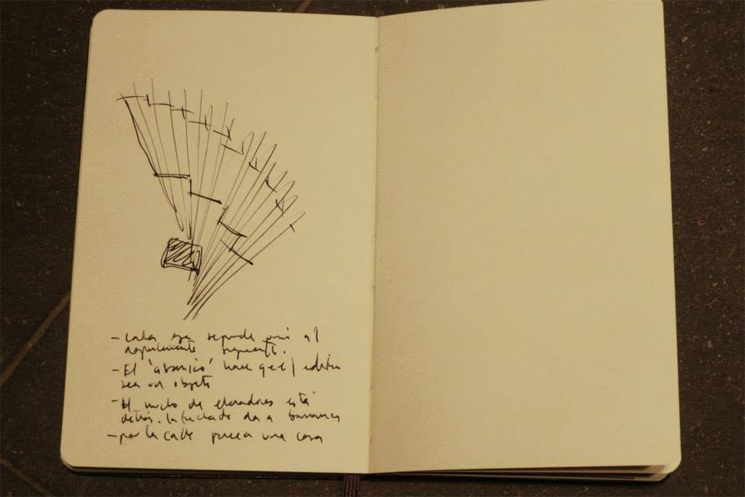 - cada eje responde más al
departamento siguiente.
- El 'abanico' hace que el edificio
sea un objeto
- El núcleo de elevadores está
detrás. la fachada da a barrancas
- por la calle parece una casa